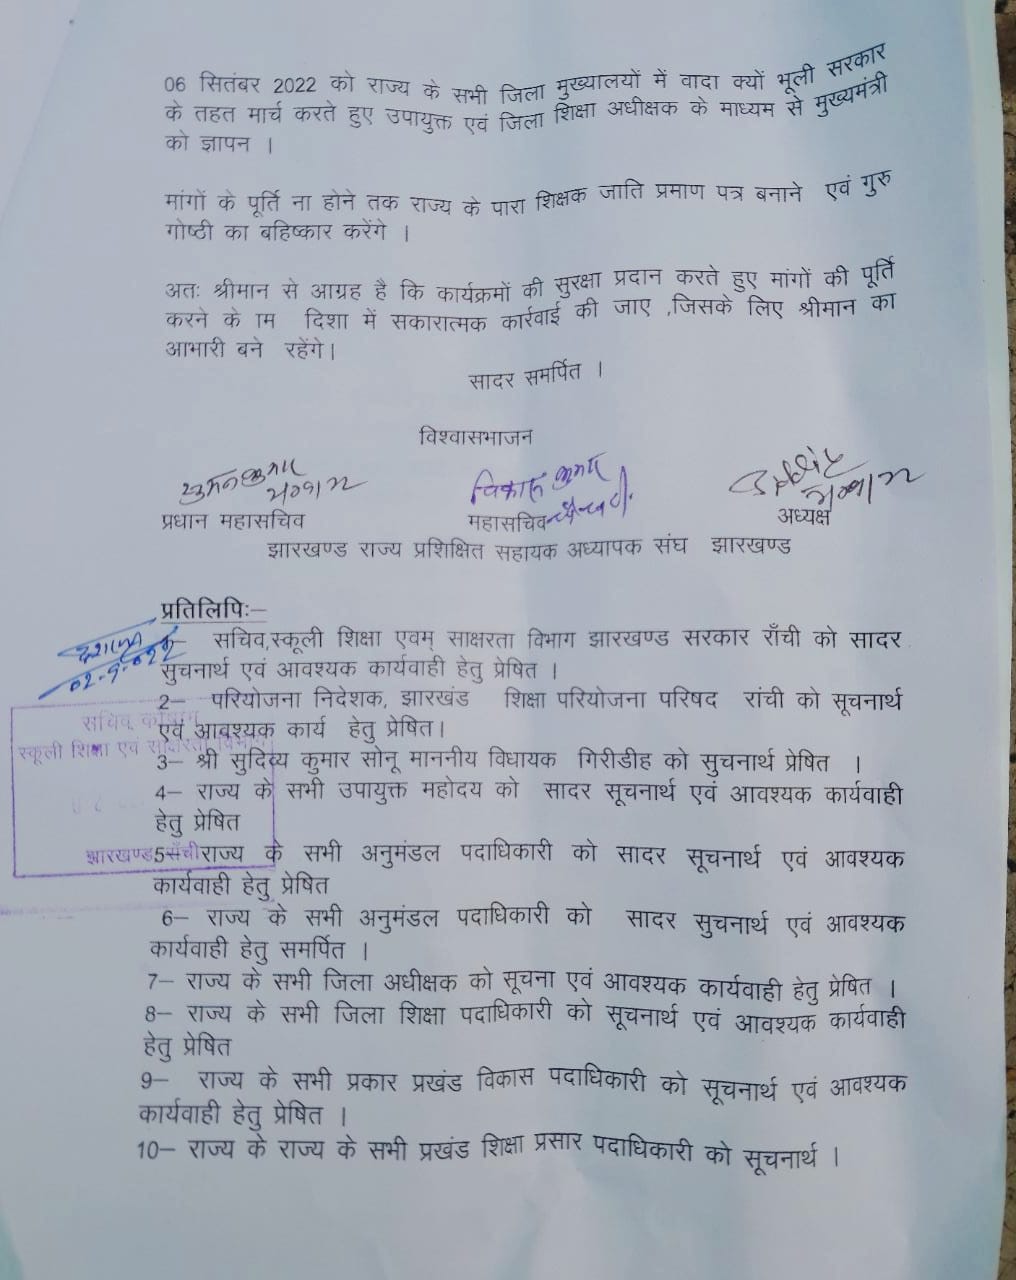 06 सितंबर 2022 को राज्य के सभी जिला मुख्यालयों में वादा क्यों भूली सरकार
के तहत मार्च करते हुए उपायुक्त एवं जिला शिक्षा अधीक्षक के माध्यम से मुख्यमंत्री
को ज्ञापन ।
मांगों के पूर्ति ना होने तक राज्य के पारा शिक्षक जाति प्रमाण पत्र बनाने एवं गुरु
गोष्ठी का बहिष्कार करेंगे ।
अतः श्रीमान से आग्रह है कि कार्यक्रमों की सुरक्षा प्रदान करते हुए मांगों की पूर्ति
करने के ाम दिशा में सकारात्मक कार्रवाई की जाए ,जिसके लिए श्रीमान का
आभारी बने रहेंगे।
सादर समर्पित ।
विश्वासभाजन
विकास कुमार
प्रधान महासचिव महासचिव अध्यक्ष
झारखण्ड राज्य प्रशिक्षित सहायक अध्यापक संघ झारखण्ड
प्रतिलिपिः–
सचिव,स्कूली शिक्षा एवम् साक्षरता विभाग झारखण्ड सरकार राँची को सादर
सुचनार्थ एवं आवश्यक कार्यवाही हेतु प्रेषित ।
02-9-022
2– परियोजना निदेशक, झारखंड शिक्षा परियोजना परिषद रांची को सूचनार्थ
एवं आवश्यक कार्य हेतु प्रेषित।
सचिव कोषांग
स्कूली शिक्षा एवं साक्षरता विभाग
3– श्री सुदिव्य कुमार सोनू माननीय विधायक गिरीडीह को सुचनार्थ प्रेषित ।
4– राज्य के सभी उपायुक्त महोदय को सादर सूचनार्थ एवं आवश्यक कार्यवाही
हेतु प्रेषित
झारखण्ड राँची
5– राज्य के सभी अनुमंडल पदाधिकारी को सादर सूचनार्थ एवं आवश्यक
कार्यवाही हेतु प्रेषित
6– राज्य के सभी अनुमंडल पदाधिकारी को सादर सुचनार्थ एवं आवश्यक
कार्यवाही हेतु समर्पित ।
7– राज्य के सभी जिला अधीक्षक को सूचना एवं आवश्यक कार्यवाही हेतु प्रेषित ।
8– राज्य के सभी जिला शिक्षा पदाधिकारी को सूचनार्थ एवं आवश्यक कार्यवाही
हेतु प्रेषित
9– राज्य के सभी प्रकार प्रखंड विकास पदाधिकारी को सूचनार्थ एवं आवश्यक
कार्यवाही हेतु प्रेषित ।
10– राज्य के राज्य के सभी प्रखंड शिक्षा प्रसार पदाधिकारी को सूचनार्थ ।